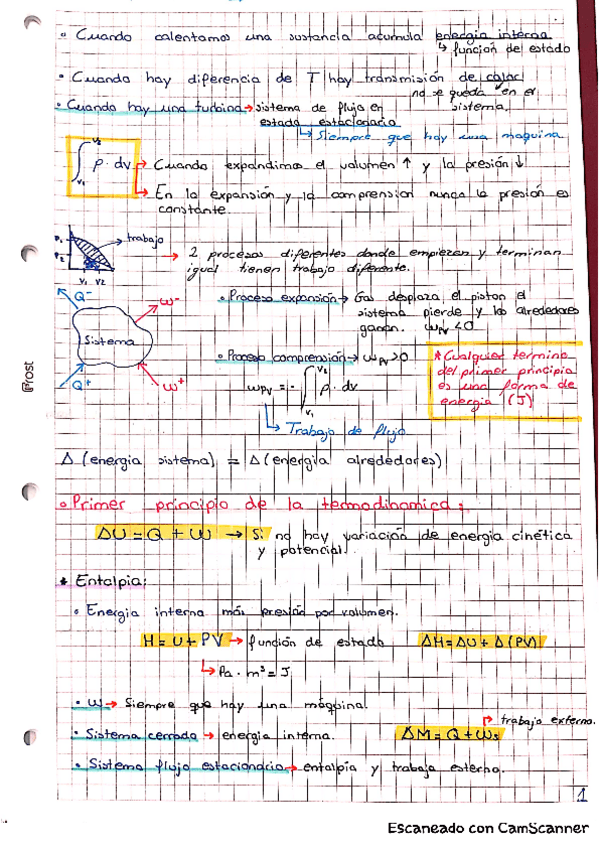 • Cuando calentamos una sustancia acumula energia interna
↳ funcion del estado
• Cuando hay diferencia de T hay transmisión de calor
no se queda en el sistema.
• Cuando hay una turbina → sistema de flujo en estado estacionario
↳ Siempre que hay una maquina
∫ p · dv
V2
V1
→ Cuando expandimos el volumen ↑ y la presión ↓
↳ En la expansión y la comprension nunca la presión es
constante.
P1
P2
V1 V2
→ trabajo
→ 2 procesos diferentes donde empiezen y terminan
igual tienen trabajo diferente.
Q⁻
W⁻
Sistema
Q⁺
W⁺
• Proceso expansión → Gas desplaza el piston el
sistema pierde y los alrededores
ganan. WPV < 0
• Proceso comprensión → WPV > 0
WPV = - ∫ p · dv
V2
V1
↳ Trabajo de flujo
* Cualquier termino
del primer principio
es una forma de
energia (J)
Δ (energia sistema) = Δ (energia alrededores)
• Primer principio de la termodinamica:
ΔU = Q + W → Si no hay variación de energia cinética
y potencial.
* Entalpia:
• Energia interna más presión por volumen.
H = U + PV → función de estado ΔH = ΔU + Δ (PV)
↳ Pa · m³ = J
• W → Siempre que hay una máquina.
→ trabajo externo.
• Sistema cerrado → energia interna. ΔM = Q + Ws
• Sistema flujo estacionario → entalpia y trabajo esterno.
1
Prost
Escaneado con CamScanner